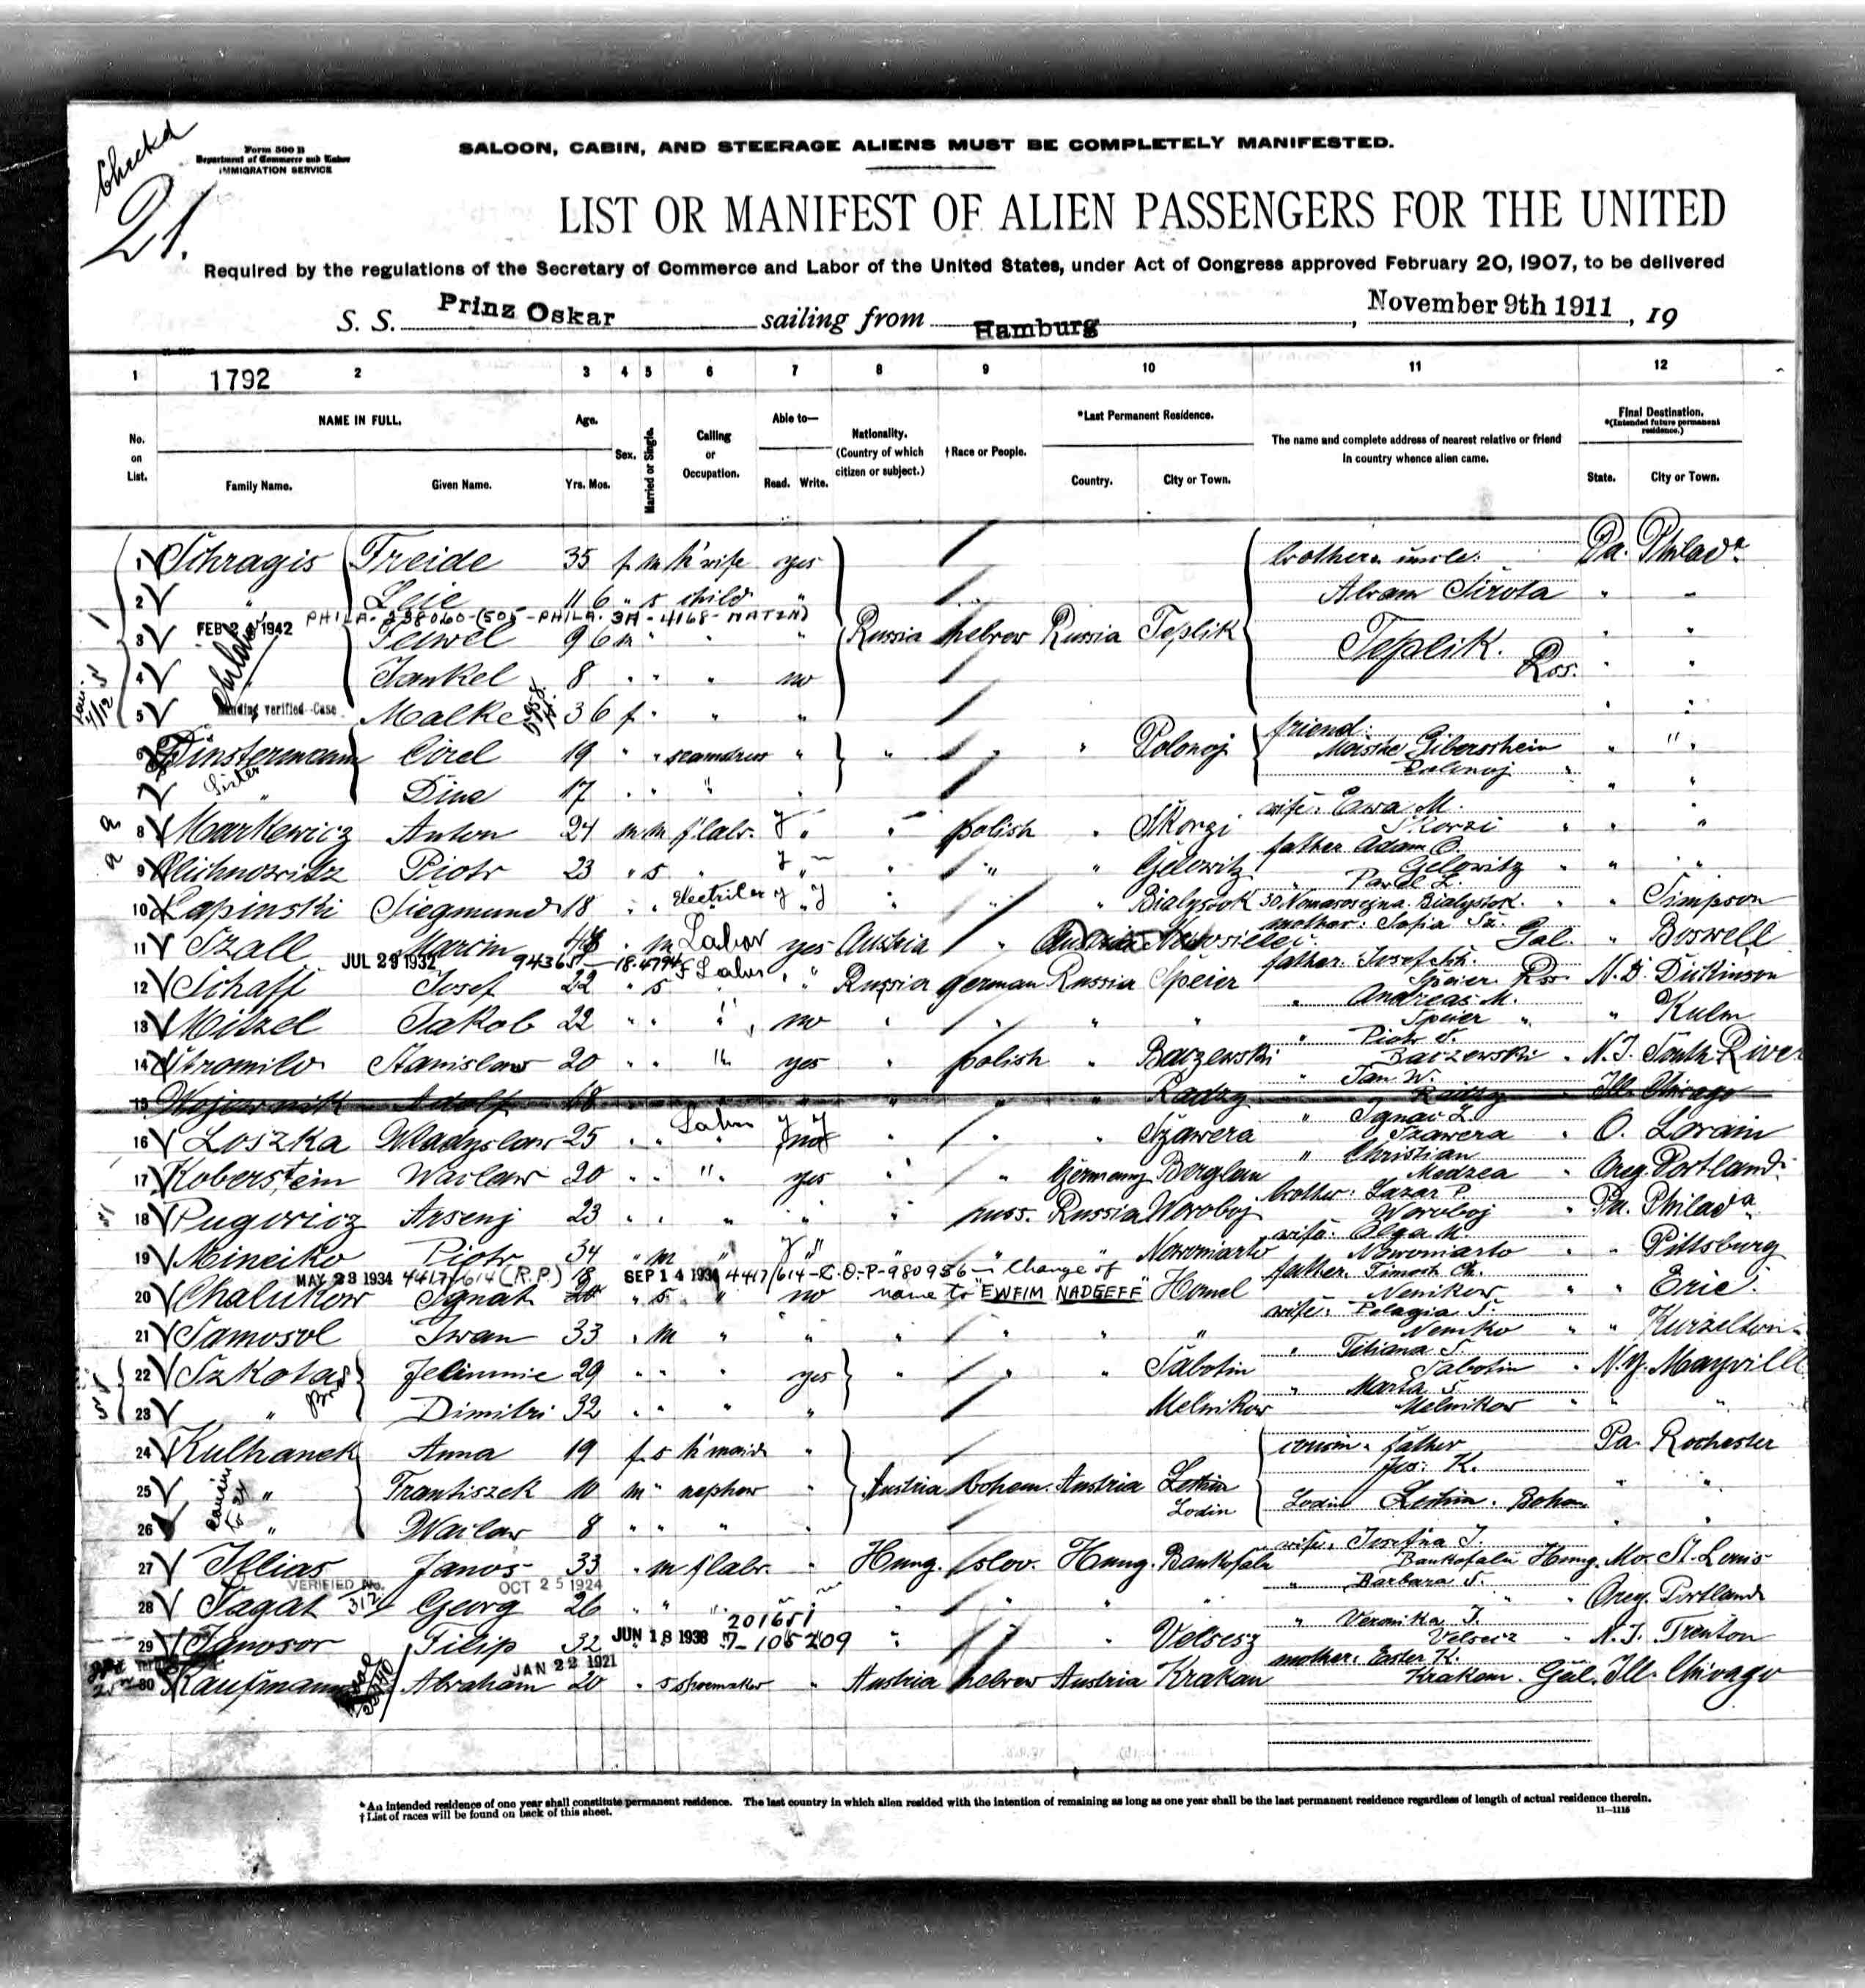 Checkd
21.
Form 500 B
Department of Commerce and Labor
IMMIGRATION SERVICE
SALOON, CABIN, AND STEERAGE ALIENS MUST BE COMPLETELY MANIFESTED.
LIST OR MANIFEST OF ALIEN PASSENGERS FOR THE UNITED
Required by the regulations of the Secretary of Commerce and Labor of the United States, under Act of Congress approved February 20, 1907, to be delivered
S. S. Prinz Oskar sailing from Hamburg, November 9th 1911, 19
1 1792 2 3 4 5 6 7 8 9 10 11 12
No. on List.
NAME IN FULL.
Family Name. Given Name.
Age.
Yrs. Mos.
Sex.
Married or Single.
Calling or Occupation.
Able to—
Read. Write.
Nationality. (Country of which citizen or subject.)
†Race or People.
*Last Permanent Residence.
Country. City or Town.
The name and complete address of nearest relative or friend in country whence alien came.
Final Destination.
*(Intended future permanent residence.)
State. City or Town.
1 Schragis Freide 35 f m h'wife yes brother & uncle: Pa. Philada
2 " Leie 11 6 " s child " Abram Sirota " "
PHILA-238060-(505-PHILA. 3A-4168-MATZN)
FEB 2 1942
3 Feiwel 9 6 m " " " Russia hebrew Russia Teplik Teplik. " "
4 " Jankel 8 " " " no Rss. " "
5 " Malke 3 6 f " " " " "
Pending verified Case
6 Finstermann Cirel 19 " " seamdress " " " " Polonoj friend: Moische Giberschein Polonoj " " "
7 Sister " Dine 17 " " " " "
8 Markewicz Anton 24 m m f'labr. y " " polish " Skorzi wife: Ewa M. Skorzi " " "
9 Olichnowitz Piotr 23 " s " y " " " " Gelowitz father Adam O. Gelowitz " " "
10 Lapinski Siegmund 18 " " y y " " " Bialystok " Pavel L. Bialystok. " " Simpson
11 Szall Marcin 48 " m Labor yes Austria " Austria mother: Sofia Sz. Gal. " Boswell
JUL 29 1932
12 Schaff Josef 22 " s F Labor " " Russia german Russia Speier father: Josef Sch. Speier Rss. N.D. Dickinson
13 Mitzel Jakob 22 " " " no " " " " " Andreas M. Speier " " Kulm
14 Stromilo Stanislaw 20 " " " yes " polish " Baczewski " Piotr S. Baczewski " N.J. South River
15 Adolf 18 " " " Radzy " Jan W. Radzy Ill. Chicago
16 Loszka Wladyslaw 25 " " Labor y y no " " " Szawera " Ignac L. Szawera " O. Lorain
17 Koberstein Waclaw 20 " " " yes " " Germany Berglau " Christian Medzea " Oreg. Portland
18 Pugovicz Arsenj 23 " " " " " russ. Russia Woroboj brother: Lazar P. Woroboj " Pa. Philada
19 Mineiko Piotr 34 " m " y " " " " Nowomarto wife: Olga M. Nowomarto " " Pittsburg
MAY 23 1934 4417/614 (R.P.) 18 SEP 14 1934 4417/614-C.O.P-980956 - Change of
20 Chalukow Ignat 20 " s " no name to "EWFIM NADEEFF" Homel father: Timosh Ch. Nemikow " " Erie
21 Samosol Iwan 33 " m " " " " " " wife: Pelagia S. Nemko " "
22 Szkolas Jelimmie 29 " " " yes " " " Sabotin " Titiana S. Sabotin " N.Y. Mayville
23 " Dimitri 32 " " " " Melnikow " Marta S. Melnikow " " "
24 Kulhanek Anna 19 f s h'maid " cousin & father Jos: K. Pa. Rochester
25 " Frantiszek 10 m " nephew " Austria Bohem. Austria Lodin Lodin Bohem " "
26 " Waclaw 8 " " " " " "
27 Illias Janos 33 " m f'labr. " Hung. slov. Hung. Bankofalu wife: Josefina I. Bankofalu Hung. Mo. St. Louis
VERIFIED No. 312 OCT 25 1924
28 Sagat Georg 26 " " " " " " " " " Barbara S. " " Oreg. Portland
201651
29 Janosor Filip 32 JUN 18 1938 7-105209 " " Velsesz " Veronika J. Velsecz " N.J. Trenton
JAN 22 1921
30 Kaufmann Abraham 20 " s shoemaker " Austria hebrew Austria Krakau mother: Ester K. Krakau. Gal. Ill. Chicago
*An intended residence of one year shall constitute permanent residence. The last country in which alien resided with the intention of remaining as long as one year shall be the last permanent residence regardless of length of actual residence therein.
†List of races will be found on back of this sheet.
11—1115